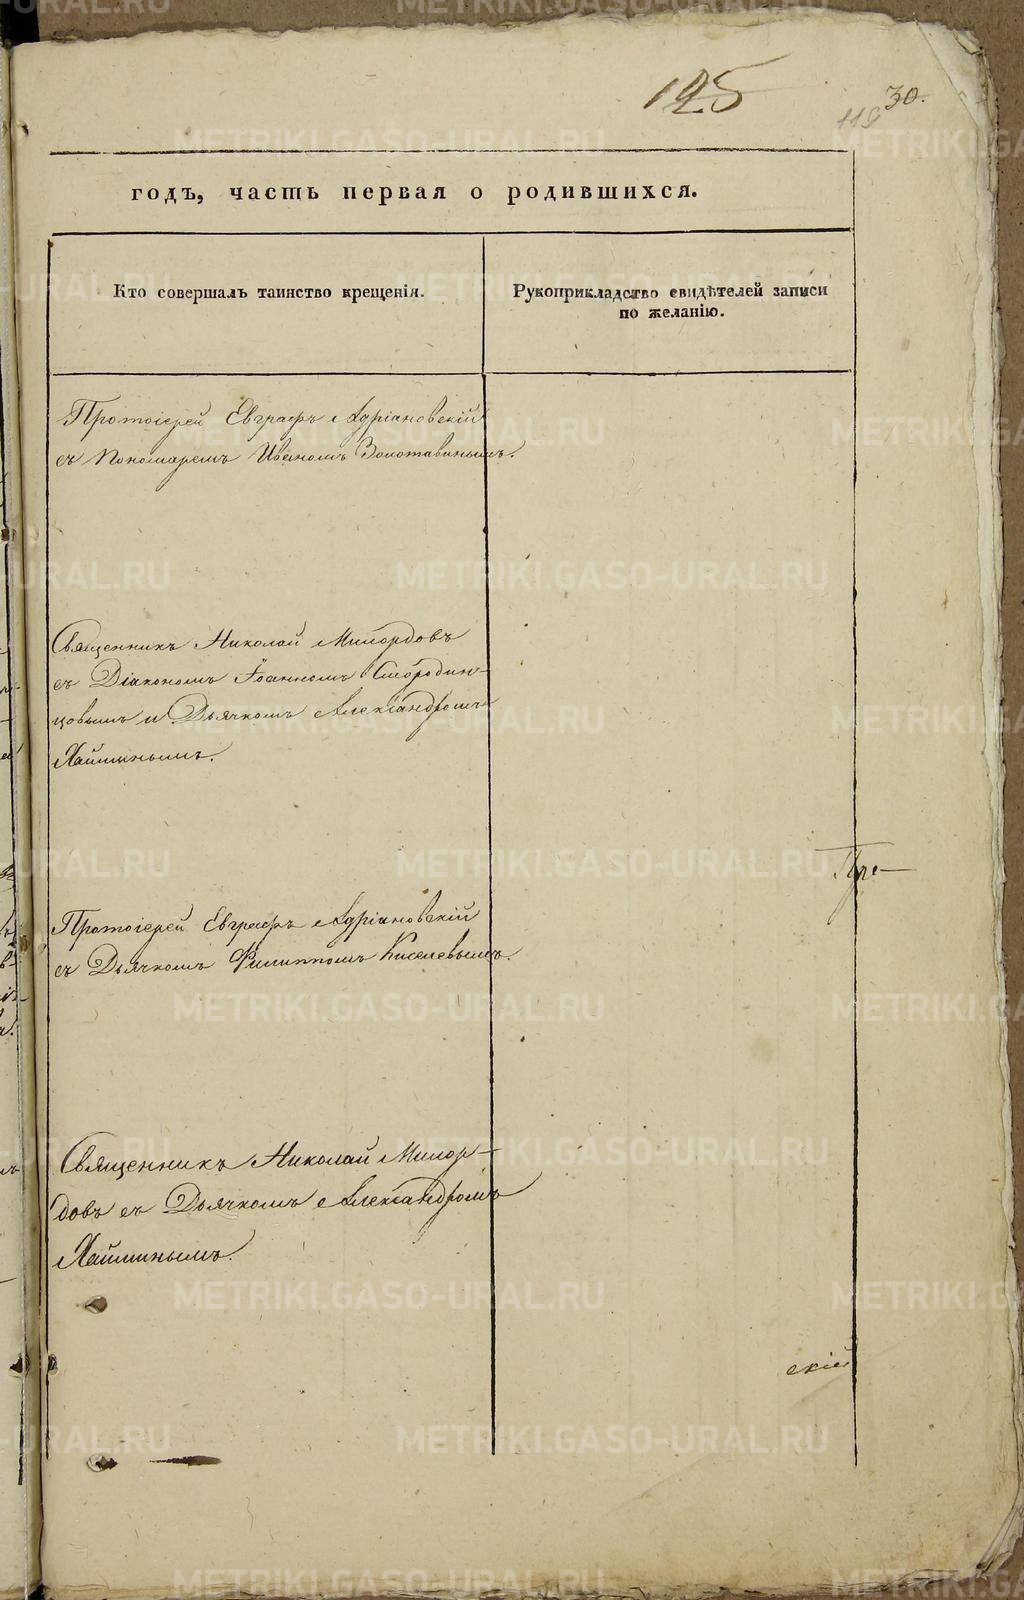 125
119
30.
годъ, часть первая о родившихся.
Кто совершалъ таинство крещенія.
Рукоприкладство свидѣтелей записи
по желанію.
Протоіерей Евграфъ Адріановскій
съ Пономаремъ Иваномъ Золотавинымъ.
Священникъ Николай Милордовъ
съ Діакономъ Іоанномъ Смородин-
цовымъ и Дьячкомъ Александромъ
Хайминымъ.
Протоіерей Евграфъ Адріановскій
съ Дьячкомъ Филиппомъ Киселевымъ.
Священникъ Николай Милор-
довъ съ Дьячкомъ Александромъ
Хайминымъ.
скій
METRIKI.GASO-URAL.RU